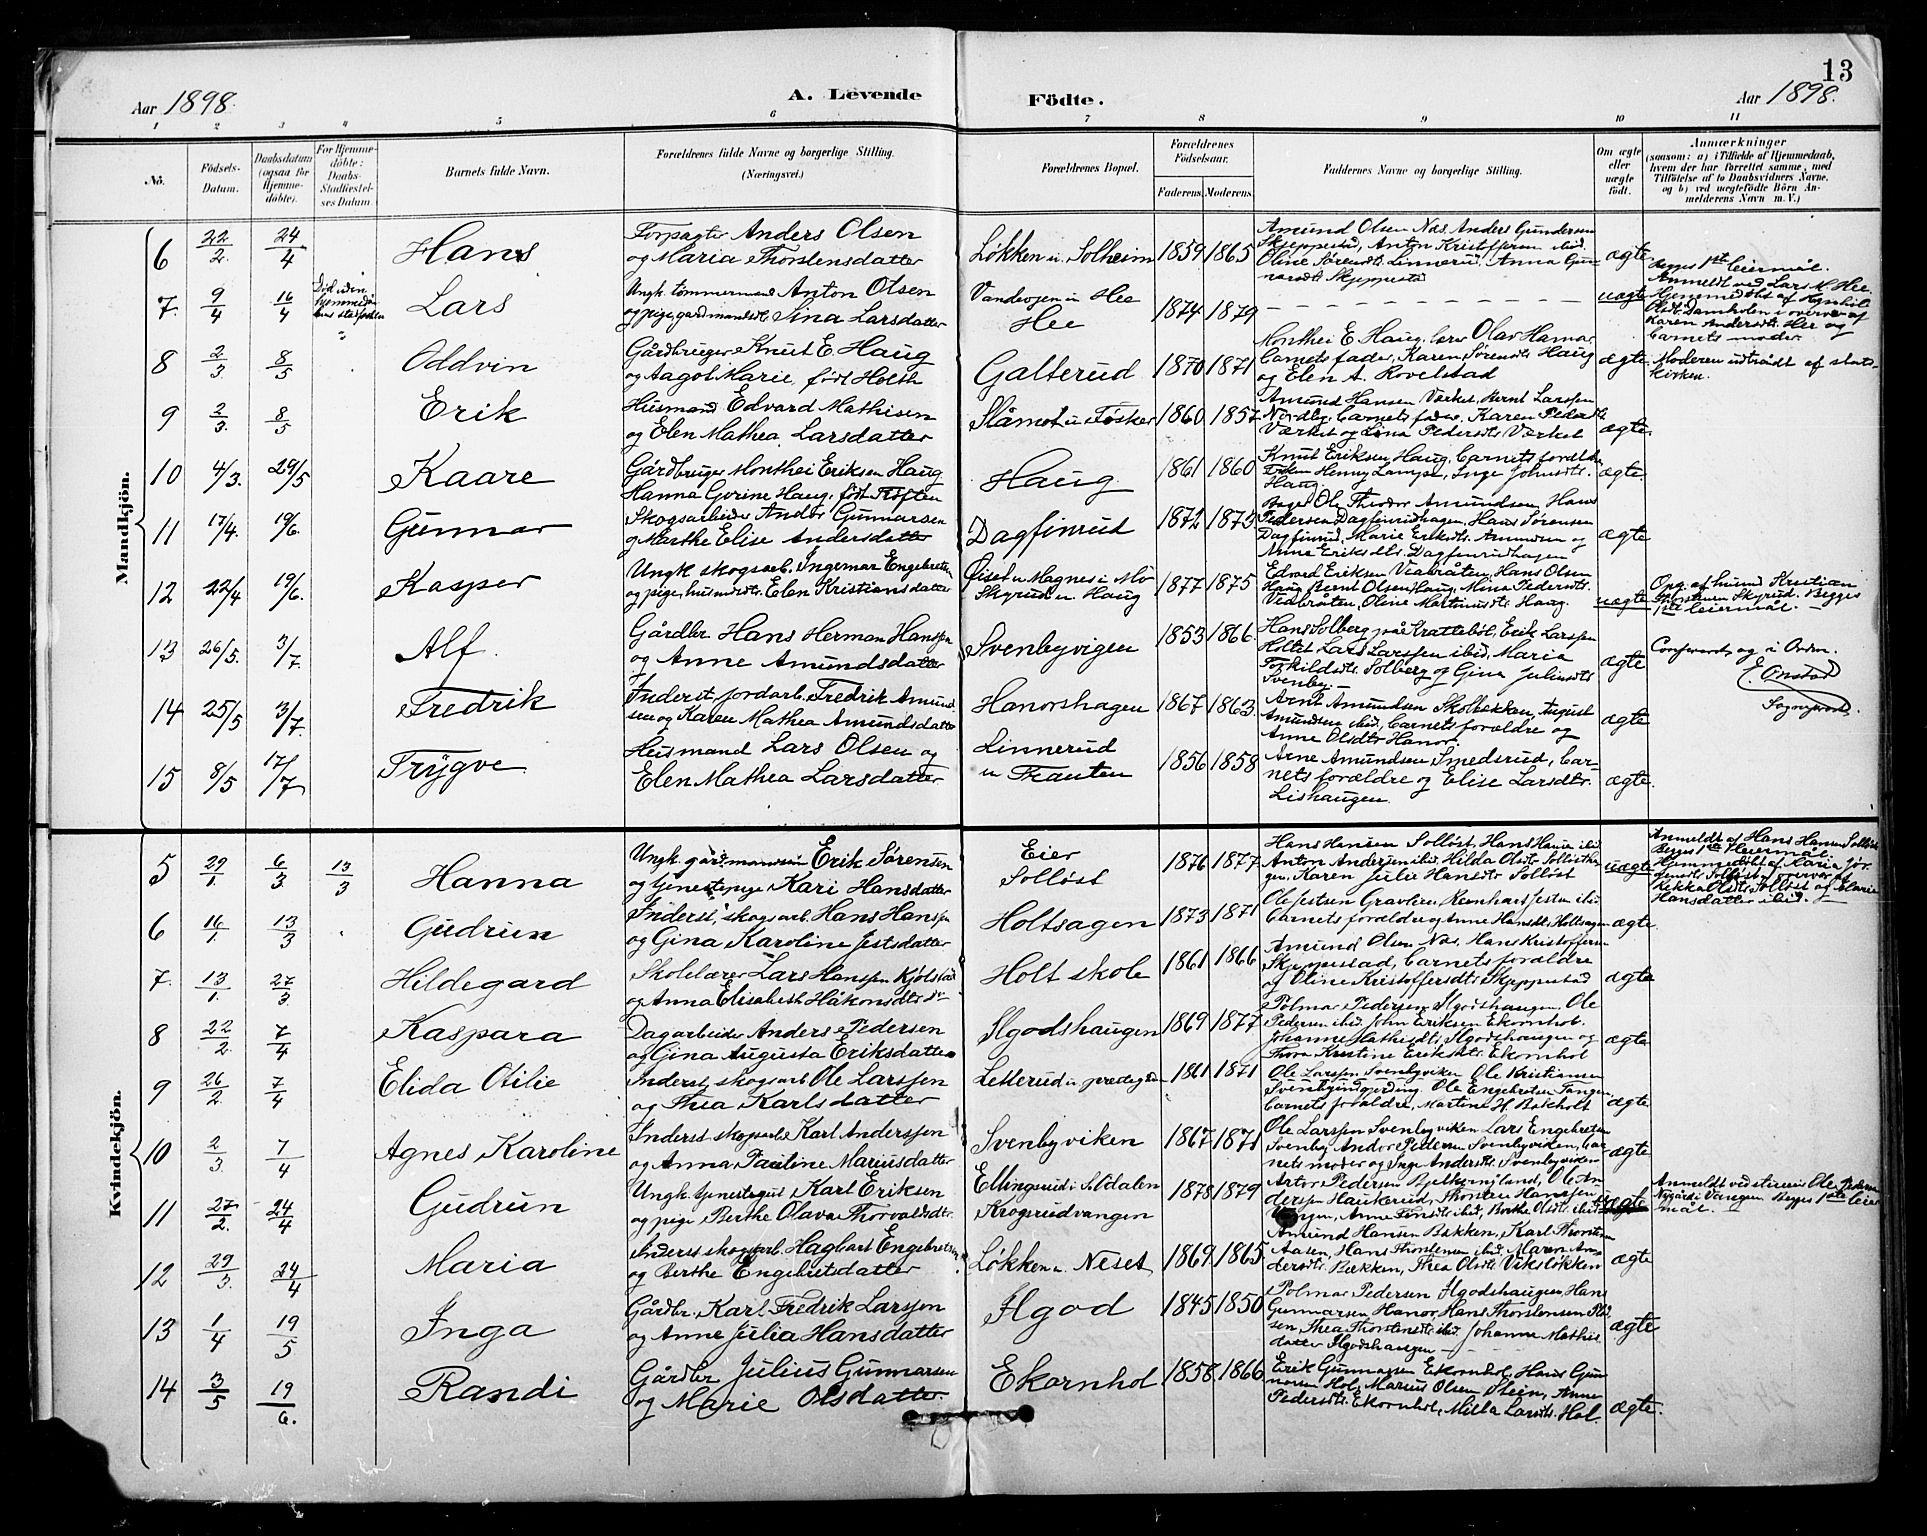 13
Aar 1898.
A. Levende Födte.
Aar 1898.
1 2 3 4 5 6 7 8 9 10 11
No.
Födsels-Datum.
Daabsdatum (ogsaa for Hjemmedöbte).
For Hjemmedöbte: Daabs-Stadfæstelses Datum
Barnets fulde Navn.
Forældrenes fulde Navne og borgerlige Stilling.
(Næringsvei.)
Forældrenes Bopæl.
Forældrenes Födselsaar.
Faderens. Moderens.
Faddernes Navne og borgerlige Stilling.
Om ægte eller uægte födt.
Anmærkninger
(saasom: a) i Tilfælde af Hjemmedaab,
hvem der har forrettet samme, med
Tilföielse af to Daabsvidners Navne.
og b) ved uægtefödte Börn An-
melderens Navn m. V.)
Mandkjön.
6 22/2. 24/4 Hans
Forpagter Anders Olsen
og Maria Thorstensdatter
Løkken u. Solheim 1859 1865
Amund Olsen Nas, Anders Gundersen
Skjeppestad, Anton Kristoffersen ibid.
Oline Sørensdt. Linnerud, Anna Gun-
narsdt. Skjeppestad
ægte
7. 9/4 16/4 Lars
Ungk. tømmermand Anton Olsen
og pige, gardmandsdt. Sina Larsdatter
Hee 1874 1879
uægte
Begges 1ste leiermål.
Anmeldt ved Lars M. Hee
Karen Andersdt. Hee og
barnets moder
8 2/3 8/5 Oddvin
Gårdbruger Knut E. Haug
og Aagot Marie, født Holth
Galterud 1870 1871
Monthei E. Haug, Olav Hanor
barnets fader, Karen Sørensdt. Haug
og Elen A. Rovelstad
ægte.
Moderen udtrådt af stats-
kirken.
9 2/3. 8/5 Erik
Husmand Edvard Mathisen
og Elen Mathea Larsdatter
Slåmot u Tøsker 1860 1857
Amund Hansen Værket, Bernt Larssen
Nordby, barnets fader, Karen Pedersdt.
Værket og Lina Pedersdt. Værket
ægte.
10 4/3. 29/5 Kaare
Gårdbruger Monthei Eriksen Haug
Hanna Gorine Haug, født Toften
Haug 1861 1860
Knut Eriksen Haug, barnets forældre
Haug.
ægte
11 17/4. 19/6. Gunnar
Skogsarbeider Andor Gunnarsen
og Marthe Elise Andersdatter
Dagfinrud 1872 1873
Ole Theodor Amundsen, Hans
Pedersen Dagfinrudhagen, Hans Sørensen
Dagfinrud, Marie Eriksdt. Amundsen og
Anne Eriksdt. Dagfinrudhagen
ægte
12 22/4 19/6. Kasper
Ungk. skogsarb. Ingemar Engebretsen
og pige, husmdt. Elen Kristiansdatter
Skyrud u Haug 1877 1875
Edvard Eriksen Viabråten, Hans Olsen
Haug, Bernt Olsen Haug, Mina Pedersdt.
Viabråten, Oline Martinusdt. Haug.
uægte
Opg. af husmd Kristian
Thorstensen Skyrud. Begges
1ste leiermål.
13 26/5. 3/7. Alf.
Gårdbr. Hans Herman Hanssen
og Anne Amundsdatter
Svenbyvigen 1853 1866
Hans Solberg på Krattebøl, Erik Larssen
Holtet, Lars Larssen ibid, Maria
Torkildsdt. Solberg og Gina Juliusdt.
Svenby
ægte
Conferert og i Orden.
E. Onstad
Sogneprest.
14 25/5 3/7. Fredrik
Inderst, jordarb. Fredrik Amund-
sen og Karen Mathea Amundsdatter
Hanorshagen 1867 1863
Arnt Amundsen Skolbekken, August
Amundsen ibid, barnets forældre og
Anne Olsdtr Hanor.
ægte
15 8/5 17/7 Trygve
Husmand Lars Olsen og
Elen Mathea Larsdatter
Linnerud
u Frauten 1856 1858
Arne Amundsen Smedsrud, bar-
nets forældre og Elise Larsdtr.
Lishaugen
ægte.
Kvindekjön.
5 29/1. 6/3. 13/3 Hanna
Ungk. gårdmandssøn Erik Sørensen
og tjenestepige Kari Hansdatter
Eier
Solløst 1876 1877
Hans Hansen Solløst, Hans Hansen ibid
Anton Andersen ibid, Hilda Olsdt. Solløstha-
gen, Karen Julie Hansdt. Solløst
uægte
Anmeldt af Hans Hansen Solløst
Begges 1ste leiermål.
Hjemmedøbt af Maria Sør-
ensdt. Solløst i overvær af
Rekka Olsdt. Solløst og Marie
Hansdatter ibid.
6 16/1. 13/3 Gudrun
Inderst, skogsarb. Hans Hanssen
og Gina Karoline Jestsdatter
Holtsagen 1873 1871
barnets forældre og Anne Hansdt. Holtsagen
ægte
7. 13/1. 27/3. Hildegard
Skolelærer Lars Hanssen Kjølstad
og Anna Elisabeth Håkonsdtr
Holt skole 1861 1866
Amund Olsen Nas, Hans Kristoffersen
Skjeppestad, barnets forældre
og Oline Kristoffersdt. Skjeppestad
ægte
8 22/2. 7/4 Kaspara
Dagarbeider Anders Pedersen
og Gina Augusta Eriksdatter
Ilgodshaugen 1869 1877
Polmar Pedersen Ilgodshaugen, Ole
Pedersen ibid, John Eriksen Ekornhol.
Johanne Mathisdt. Ilgodshaugen og
Thora Kristine Eriksdt. Ekornhol
ægte
9 26/2 7/4 Elida Otilie
Inderst, skogsarb Ole Larssen
og Thea Karlsdatter
1861 1871
Ole Larssen Svenbyviken Ole Kristiansen
Ole Engebretsen Tangen
barnets forældre, Martine H. Bakholt
ægte
10 2/3. 7/4 Agnes Karoline
Inderst skogsarb. Karl Anderssen
og Anna Pauline Mariusdatter
Svenbyviken 1867 1871
Ole Larssen Svenbyviken Lars Engebretsen
Svenby Andor Pedersen Svenbyviken, bar-
nets moder og Inge Andersdt. Svenbyviken
ægte
11 27/2. 24/4 Gudrun
Ungk. tjenestegut Karl Eriksen
og pige Berthe Olava Thorvaldsdtr.
Ellingsrud i S. Odalen
Krogsrudvangen 1878 1879
uægte
Begges 1ste leier-
mål.
12 29/3. 24/4 Maria
Inderst skogsarb. Hagbart Engebretsen
og Berthe Engebretsdatter
Løkken u. Neset 1869 1865
Amund Hansen Bækken, Karl Thorstensen
Aasen, Hans Thorstensen ibid, Maren An-
dersdt. Bækken, Thea Olsdt. Viksløkken
ægte
13 1/4 19/5 Inga
Gårdbr. Karl Fredrik Larssen
og Anne Julia Hansdatter
Ilgod 1845 1850
Polmar Pedersen Ilgodshaugen, Hans
Gunnarsen Hanor, Hans Thorstensen
Thea Thorstensdt. ibid, Johanne Mathis-
datter Ilgodshaugen
ægte
14 3/5 19/6. Randi
Gårdbr Julius Gunnarsen
og Marie Olsdatter
Ekornhol 1858 1866
Erik Gunnarsen Ekornhol, Hans Gun-
narsen Hol, Marius Olsen Stein, Anne
Pedersdt. Ekornhol, Milla Larsdt. Hol.
ægte.